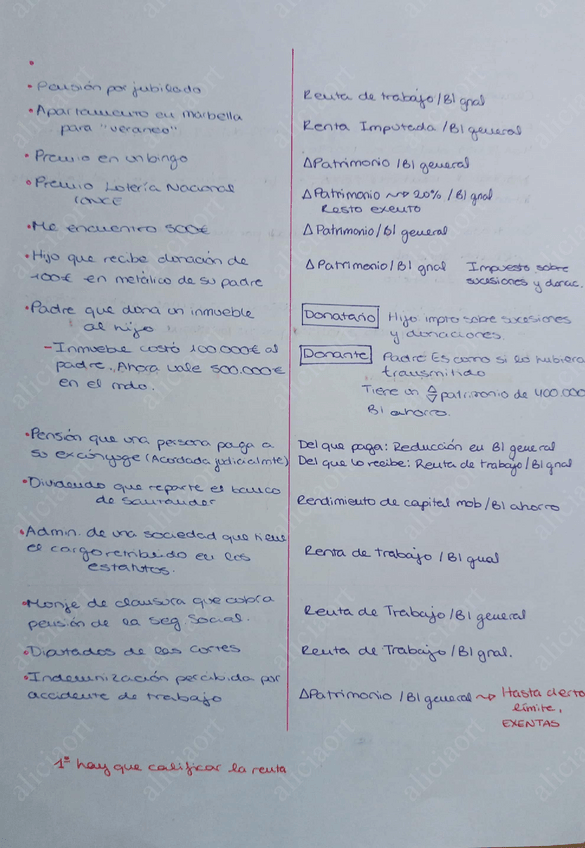 • Pensión por jubilado
Renta de trabajo / BI gnal
• Apartamento en marbella
para "veraneo"
Renta Imputada / BI general
• Premio en un bingo
Δ Patrimonio / BI general
• Premio Lotería Nacional
(ONCE
Δ Patrimonio ~> 20% / BI gnal
Resto exento
• Me encuentro 500€
Δ Patrimonio / BI general
• Hijo que recibe donación de
100€ en metálico de su padre
Δ Patrimonio / BI gnal Impuesto sobre
sucesiones y donac.
• Padre que dona un inmueble
al hijo
- Inmueble costó 100.000€ al
padre. Ahora vale 500.000€
en el mdo.
Donatario Hijo impto sobre sucesiones
y donaciones.
Donante Padre Es como si lo hubiera
transmitido
Tiene un Δ∇ patrimonio de 400.000
BI ahorro.
• Pensión que una persona paga a
su excónyuge (Acordada judicialmte)
Del que paga: Reducción en BI general
Del que lo recibe: Renta de trabajo / BI gnal
• Dividendo que reparte el banco
de Santander
Rendimiento de capital mob / BI ahorro
• Admin. de una sociedad que tiene
el cargo retribuido en los
estatutos.
Renta de trabajo / BI gnal
• Monje de clausura que cobra
pensión de la Seg Social.
Renta de Trabajo / BI general
• Diputados de las cortes
Renta de Trabajo / BI gnal.
• Indemnización percibida por
accidente de trabajo
Δ Patrimonio / BI general ~> Hasta cierto
límite,
EXENTAS
1º hay que calificar la renta
aliciaort